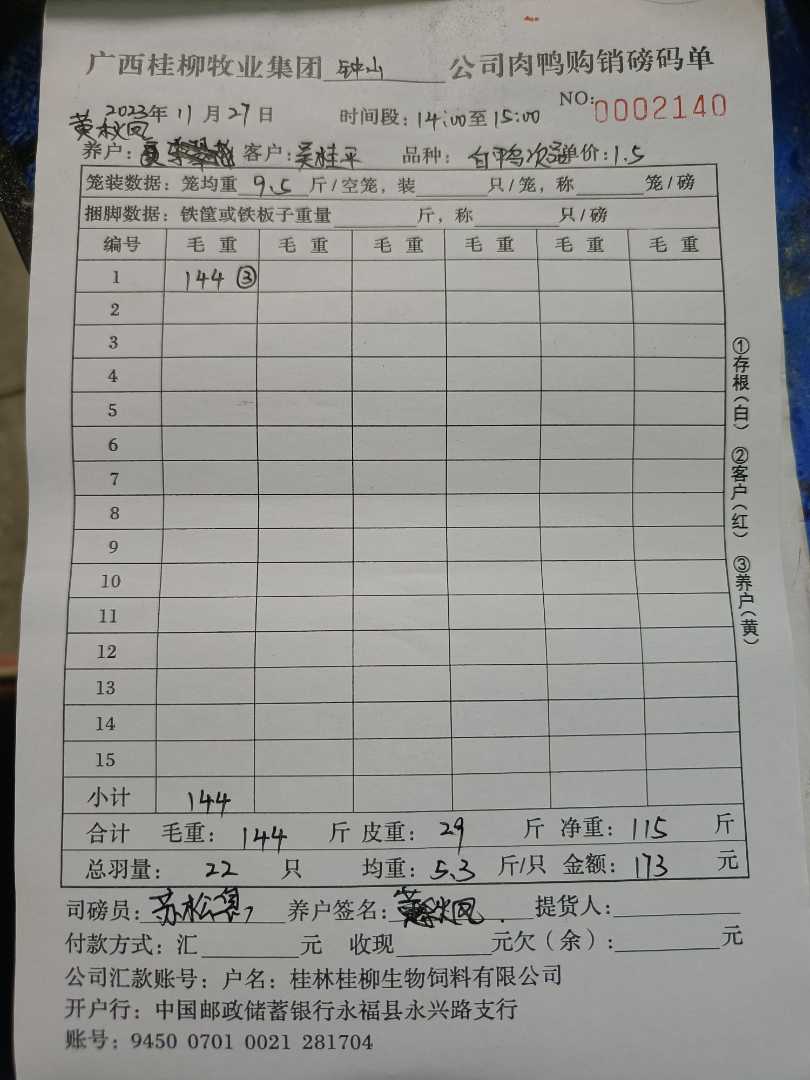 广西桂柳牧业集团 钟山 公司肉鸭购销磅码单
2023年11月27日 时间段:14:00至15:00 NO:0002140
黄秋凤
养户: 客户:吴桂平 品种:白鸭次 单价:1.5
笼装数据:笼均重 9.5 斤/空笼,装 只/笼,称 笼/磅
捆脚数据:铁筐或铁板子重量 斤,称 只/磅
编号 毛重 毛重 毛重 毛重 毛重 毛重
1 144 ③
2
3
4
5
6
7
8
9
10
11
12
13
14
15
小计 144
合计 毛重:144 斤 皮重:29 斤 净重:115 斤
总羽量:22 只 均重:5.3 斤/只 金额:173 元
司磅员:苏松 养户签名:黄秋凤 提货人:
付款方式:汇 元 收现 元欠(余): 元
公司汇款账号:户名:桂林桂柳生物饲料有限公司
开户行:中国邮政储蓄银行永福县永兴路支行
账号:9450 0701 0021 281704
①存根(白) ②客户(红) ③养户(黄)